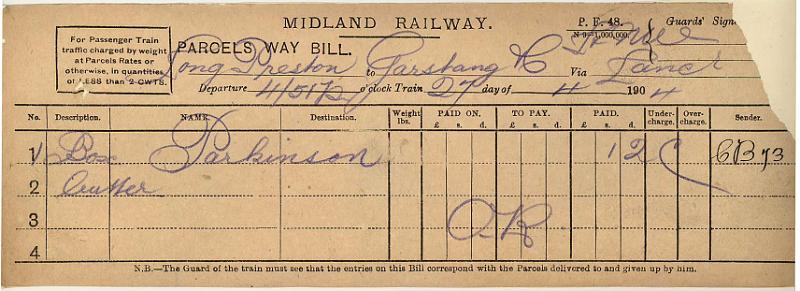 MIDLAND RAILWAY.
P. F. 48.
Guards' Sign
N 9-1,000,000.
For Passenger Train
traffic charged by weight
at Parcels Rates or
otherwise, in quantities
of LESS than 2 CWTS.
PARCELS WAY BILL.
Long Preston to Garstang & C Via Lancr
Departure 4/51 p o'clock Train 27 day of 4 1904
No. Description. NAME. Destination. Weight lbs. PAID ON. £ s. d. TO PAY. £ s. d. PAID. £ s. d. Under-charge. Over-charge. Sender.
1 Box Parkinson 1 2 C
2 Butter
3 O.R
4
N.B.—The Guard of the train must see that the entries on this Bill correspond with the Parcels delivered to and given up by him.